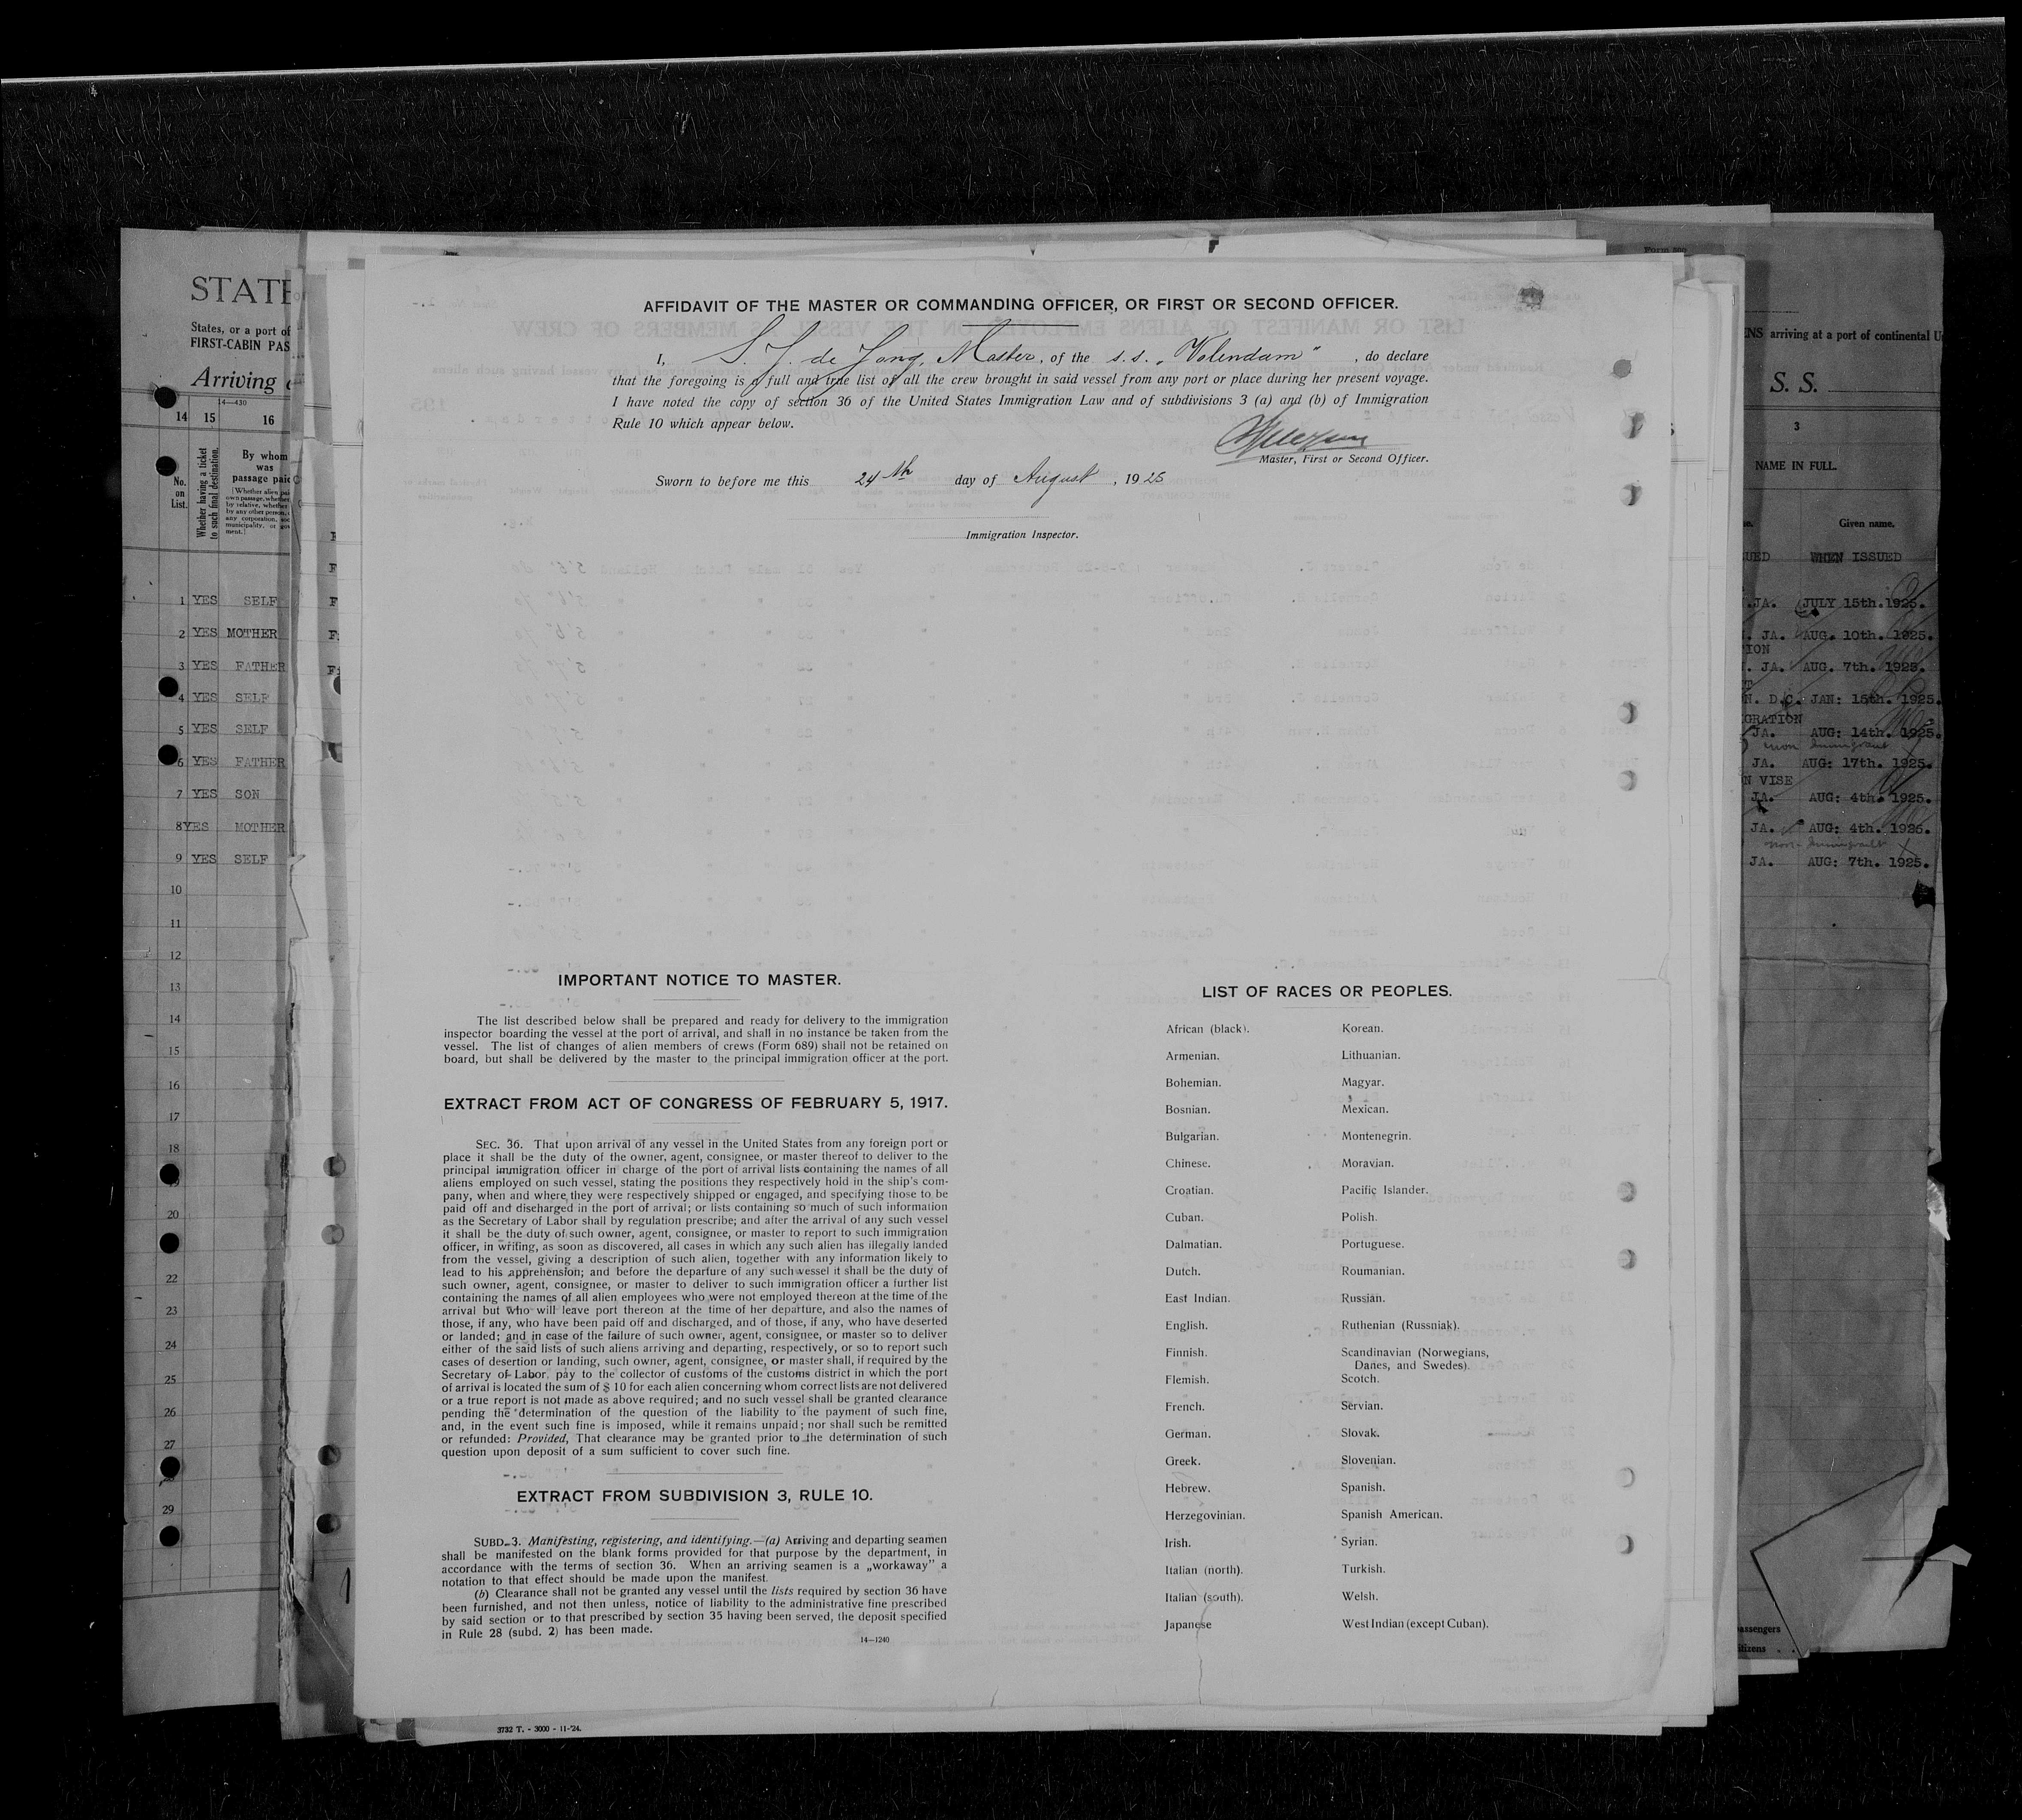 AFFIDAVIT OF THE MASTER OR COMMANDING OFFICER, OR FIRST OR SECOND OFFICER.
I, S. J. de Jong, Master, of the s.s. „Volendam" , do declare
that the foregoing is a full and true list of all the crew brought in said vessel from any port or place during her present voyage.
I have noted the copy of section 36 of the United States Immigration Law and of subdivisions 3 (a) and (b) of Immigration
Rule 10 which appear below.
Master, First or Second Officer.
Sworn to before me this 24th day of August , 1925
Immigration Inspector.
IMPORTANT NOTICE TO MASTER.
The list described below shall be prepared and ready for delivery to the immigration
inspector boarding the vessel at the port of arrival, and shall in no instance be taken from the
vessel. The list of changes of alien members of crews (Form 689) shall not be retained on
board, but shall be delivered by the master to the principal immigration officer at the port.
EXTRACT FROM ACT OF CONGRESS OF FEBRUARY 5, 1917.
SEC. 36. That upon arrival of any vessel in the United States from any foreign port or
place it shall be the duty of the owner, agent, consignee, or master thereof to deliver to the
principal immigration officer in charge of the port of arrival lists containing the names of all
aliens employed on such vessel, stating the positions they respectively hold in the ship's com-
pany, when and where they were respectively shipped or engaged, and specifying those to be
paid off and discharged in the port of arrival; or lists containing so much of such information
as the Secretary of Labor shall by regulation prescribe; and after the arrival of any such vessel
it shall be the duty of such owner, agent, consignee, or master to report to such immigration
officer, in writing, as soon as discovered, all cases in which any such alien has illegally landed
from the vessel, giving a description of such alien, together with any information likely to
lead to his apprehension; and before the departure of any such vessel it shall be the duty of
such owner, agent, consignee, or master to deliver to such immigration officer a further list
containing the names of all alien employees who were not employed thereon at the time of the
arrival but who will leave port thereon at the time of her departure, and also the names of
those, if any, who have been paid off and discharged, and of those, if any, who have deserted
or landed; and in case of the failure of such owner, agent, consignee, or master so to deliver
either of the said lists of such aliens arriving and departing, respectively, or so to report such
cases of desertion or landing, such owner, agent, consignee, or master shall, if required by the
Secretary of Labor, pay to the collector of customs of the customs district in which the port
of arrival is located the sum of $ 10 for each alien concerning whom correct lists are not delivered
or a true report is not made as above required; and no such vessel shall be granted clearance
pending the determination of the question of the liability to the payment of such fine,
and, in the event such fine is imposed, while it remains unpaid; nor shall such be remitted
or refunded: Provided, That clearance may be granted prior to the determination of such
question upon deposit of a sum sufficient to cover such fine.
EXTRACT FROM SUBDIVISION 3, RULE 10.
SUBD. 3. Manifesting, registering, and identifying.—(a) Arriving and departing seamen
shall be manifested on the blank forms provided for that purpose by the department, in
accordance with the terms of section 36. When an arriving seamen is a „workaway" a
notation to that effect should be made upon the manifest.
(b) Clearance shall not be granted any vessel until the lists required by section 36 have
been furnished, and not then unless, notice of liability to the administrative fine prescribed
by said section or to that prescribed by section 35 having been served, the deposit specified
in Rule 28 (subd. 2) has been made.
14—1240
LIST OF RACES OR PEOPLES.
African (black). Korean.
Armenian. Lithuanian.
Bohemian. Magyar.
Bosnian. Mexican.
Bulgarian. Montenegrin.
Chinese. Moravian.
Croatian. Pacific Islander.
Cuban. Polish.
Dalmatian. Portuguese.
Dutch. Roumanian.
East Indian. Russian.
English. Ruthenian (Russniak).
Finnish. Scandinavian (Norwegians,
Danes, and Swedes).
Flemish. Scotch.
French. Servian.
German. Slovak.
Greek. Slovenian.
Hebrew. Spanish.
Herzegovinian. Spanish American.
Irish. Syrian.
Italian (north). Turkish.
Italian (south). Welsh.
Japanese West Indian (except Cuban).
3732 T. - 3000 - 11-'24.
STATE
States, or a port of
FIRST-CABIN PAS
Arriving
14—430
14 15 16
No.
on
List.
Whether having a ticket
to such final destination.
By whom
was
passage paid
1 YES SELF
2 YES MOTHER
3 YES FATHER
4 YES SELF
5 YES SELF
6 YES FATHER
7 YES SON
8 YES MOTHER
9 YES SELF
10
11
12
13
14
15
16
17
18
20
22
23
24
25
26
27
29
Form 500
ENS arriving at a port of continental U
S. S.
3
NAME IN FULL.
Given name.
UED WHEN ISSUED
JA. JULY 15th. 1925.
JA. AUG. 10th. 1925.
TION
JA. AUG. 7th. 1925.
N. D.C. JAN: 15th. 1925.
GRATION
JA. AUG: 14th. 1925.
non Immigrant
JA. AUG: 17th. 1925.
N VISE
JA. AUG: 4th. 1925.
JA. AUG: 4th. 1925.
non-Immigrant
JA. AUG: 7th. 1925.
assengers
itizens